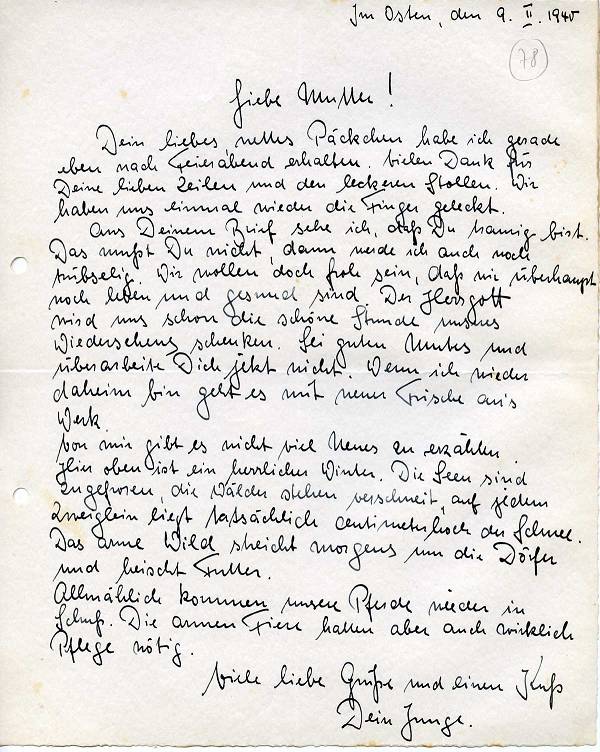 Im Osten, den 9. II. 1945
78
Liebe Mutter!
Dein liebes, nettes Päckchen habe ich gerade
eben nach Feierabend erhalten. Vielen Dank für
Deine lieben Zeilen und den leckeren Stollen. Wir
haben uns einmal wieder die Finger geleckt.
Aus Deinem Brief sehe ich, daß Du traurig bist.
Das mußt Du nicht, dann werde ich auch noch
trübselig. Wir wollen doch froh sein, daß wir überhaupt
noch leben und gesund sind. Der Herrgott
wird uns schon die schöne Stunde unseres
Wiedersehens schenken. Sei guten Mutes und
überarbeite Dich jetzt nicht. Wenn ich wieder
daheim bin geht es mit neuer Frische ans
Werk.
Von mir gibt es nicht viel Neues zu erzählen.
Hier oben ist ein herrlicher Winter. Die Seen sind
zugefroren, die Wälder stehen verschneit, auf jedem
Zweiglein liegt tatsächlich centimeterhoch der Schnee.
Das arme Wild streicht morgens um die Dörfer
und heischt Futter.
Allmählich kommen unsere Pferde wieder in
Schuß. Die armen Tiere hatten aber auch wirklich
Pflege nötig.
Viele liebe Grüße und einen Kuß
Dein Junge.